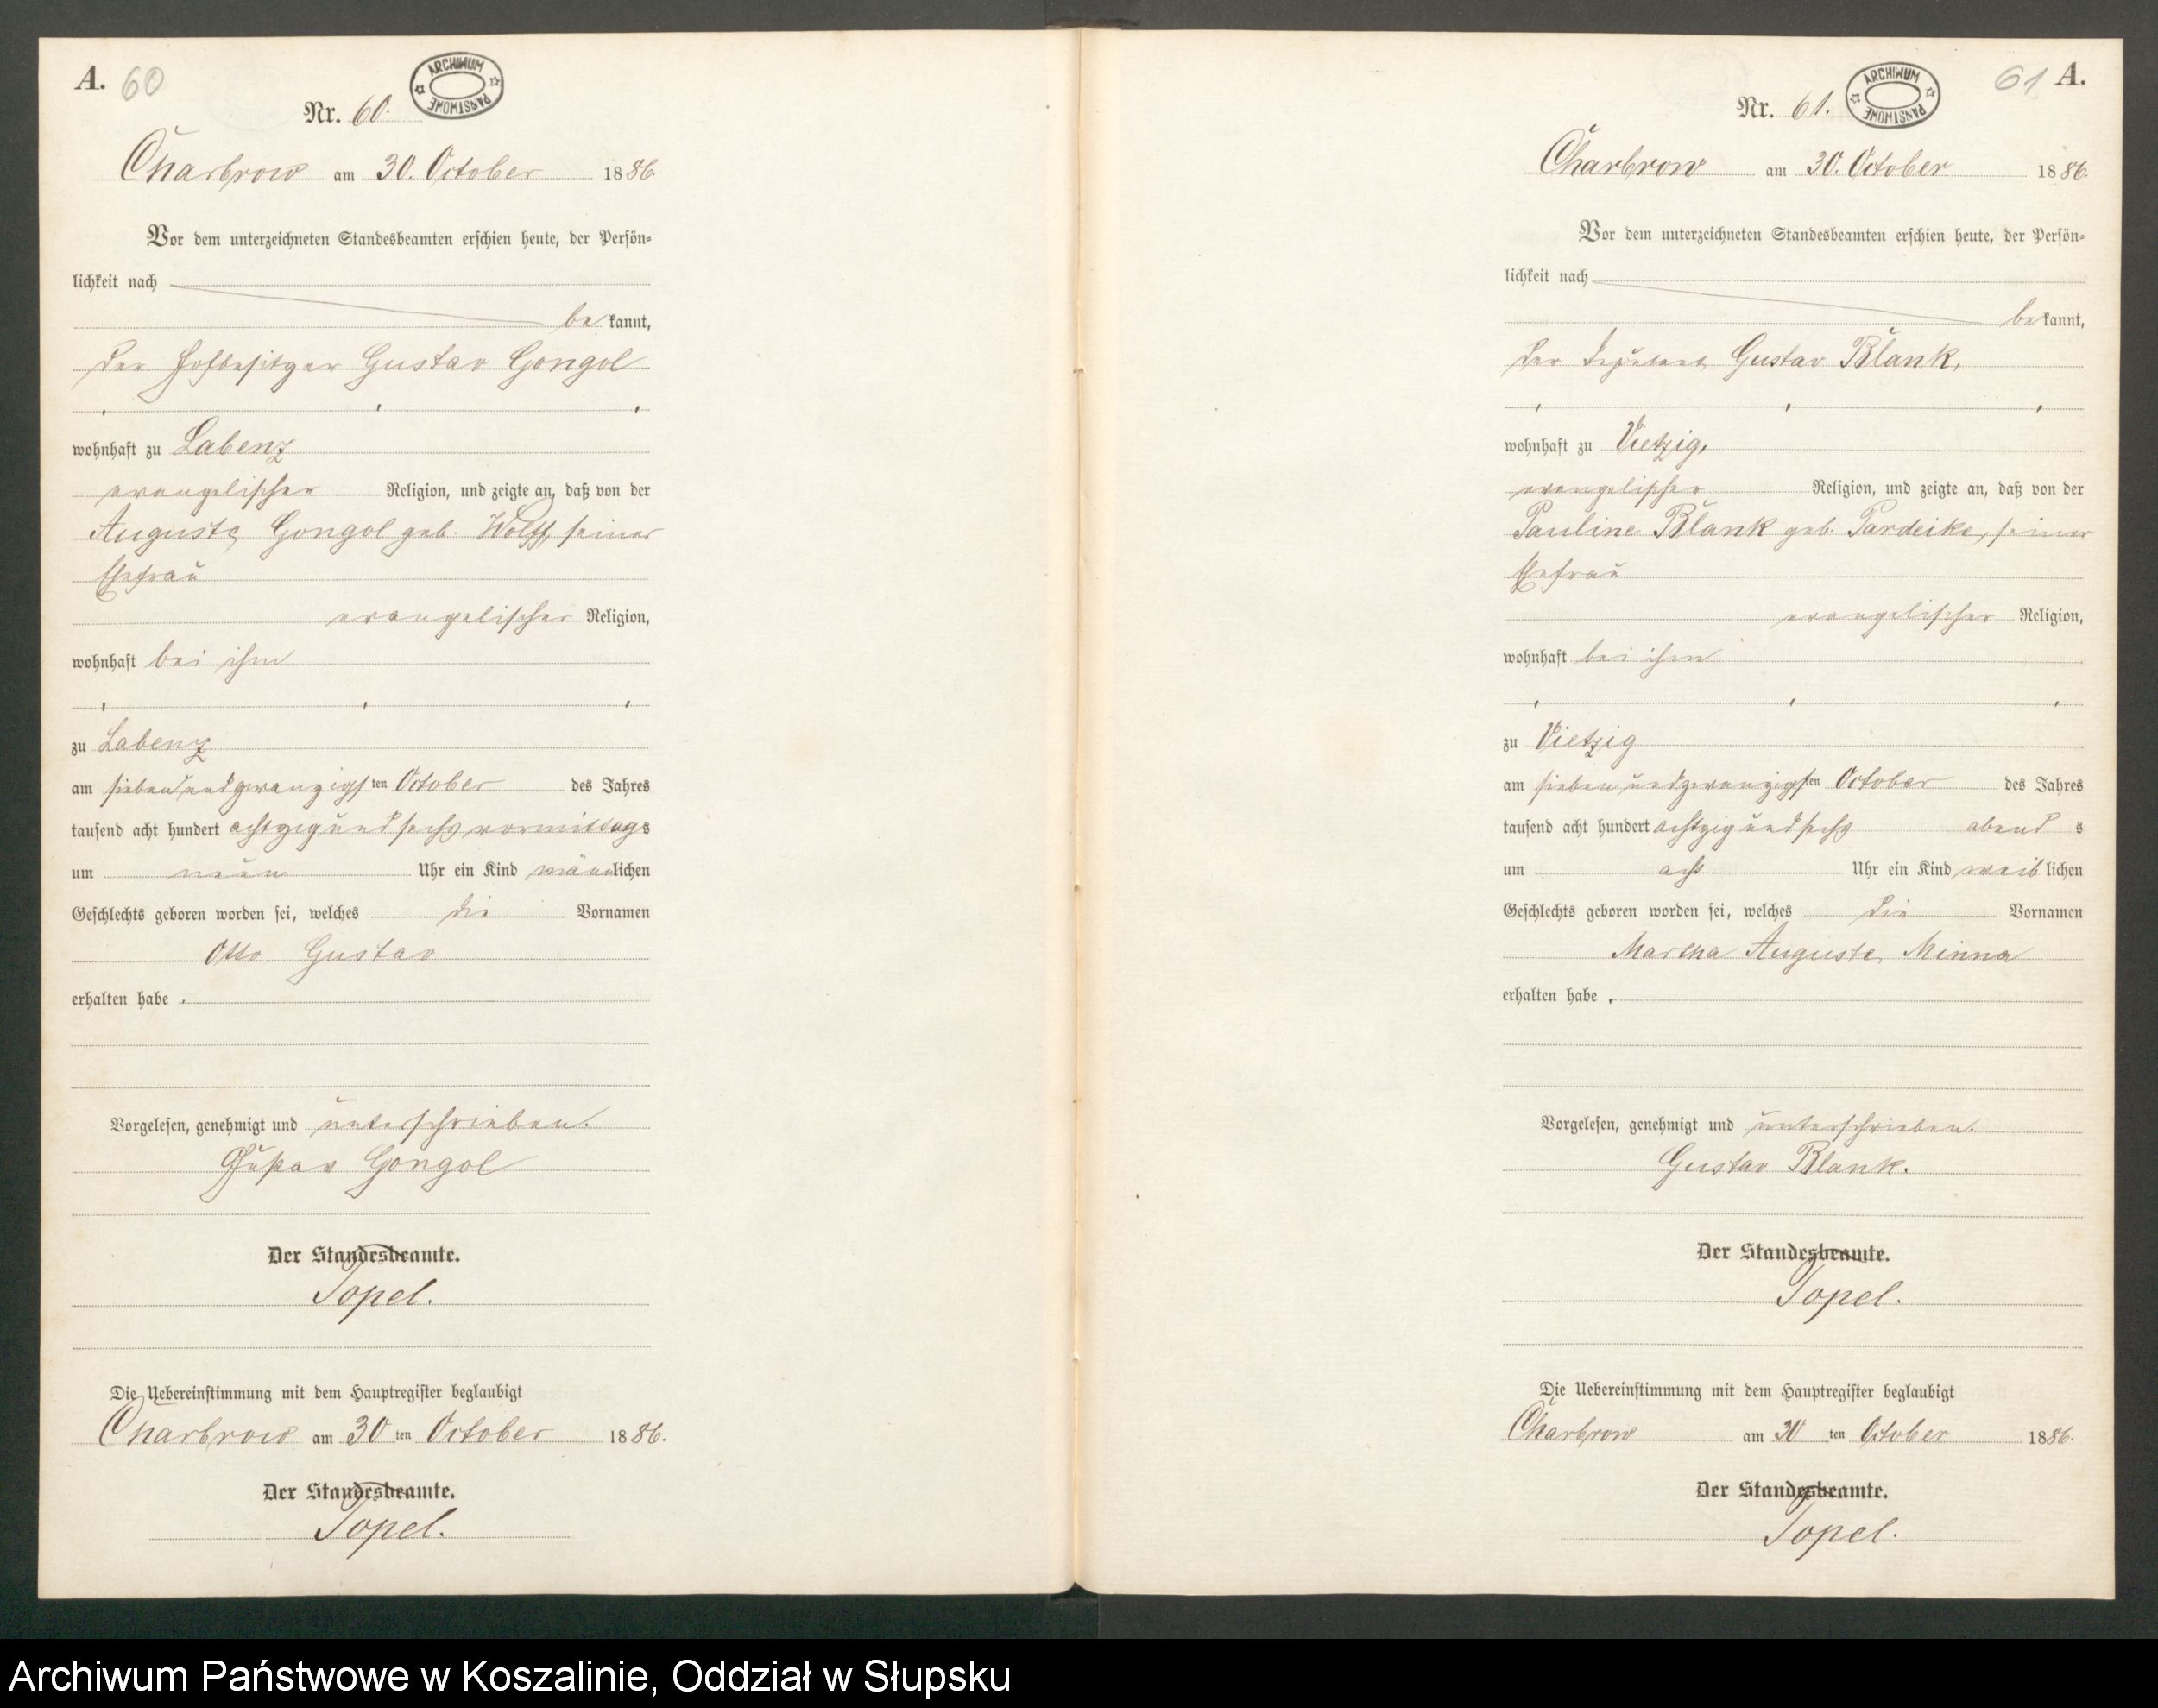 A. 60
ARCHIWUM PAŃSTWOWE
Nr. 60.
Charbrow am 30. October 1886.
Vor dem unterzeichneten Standesbeamten erschien heute, der Persön-
lichkeit nach
be kannt,
der Hofbesitzer Gustav Gongol
wohnhaft zu Labenz
evangelischer Religion, und zeigte an, daß von der
Auguste Gongol geb. Wolff, seiner
Ehefrau
evangelischer Religion,
wohnhaft bei ihm
zu Labenz
am siebenundzwanzigsten October des Jahres
tausend acht hundert achtzig und sechs vormittags
um neun Uhr ein Kind männlichen
Geschlechts geboren worden sei, welches die Vornamen
Otto Gustav
erhalten habe.
Vorgelesen, genehmigt und unterschrieben.
Gustav Gongol
Der Standesbeamte.
Topel.
Die Uebereinstimmung mit dem Hauptregister beglaubigt
Charbrow am 30 ten October 1886.
Der Standesbeamte.
Topel.
61 A.
ARCHIWUM PAŃSTWOWE
Nr. 61.
Charbrow am 30. October 1886.
Vor dem unterzeichneten Standesbeamten erschien heute, der Persön-
lichkeit nach
be kannt,
der Deputant Gustav Blank,
wohnhaft zu Vietzig,
evangelischer Religion, und zeigte an, daß von der
Pauline Blank geb. Pardeike, seiner
Ehefrau
evangelischer Religion,
wohnhaft bei ihm
zu Vietzig
am siebenundzwanzigsten October des Jahres
tausend acht hundert achtzig und sechs abend s
um acht Uhr ein Kind weib lichen
Geschlechts geboren worden sei, welches die Vornamen
Martha Auguste Minna
erhalten habe.
Vorgelesen, genehmigt und unterschrieben.
Gustav Blank.
Der Standesbeamte.
Topel.
Die Uebereinstimmung mit dem Hauptregister beglaubigt
Charbrow am 30 ten October 1886.
Der Standesbeamte.
Topel.
Archiwum Państwowe w Koszalinie, Oddział w Słupsku